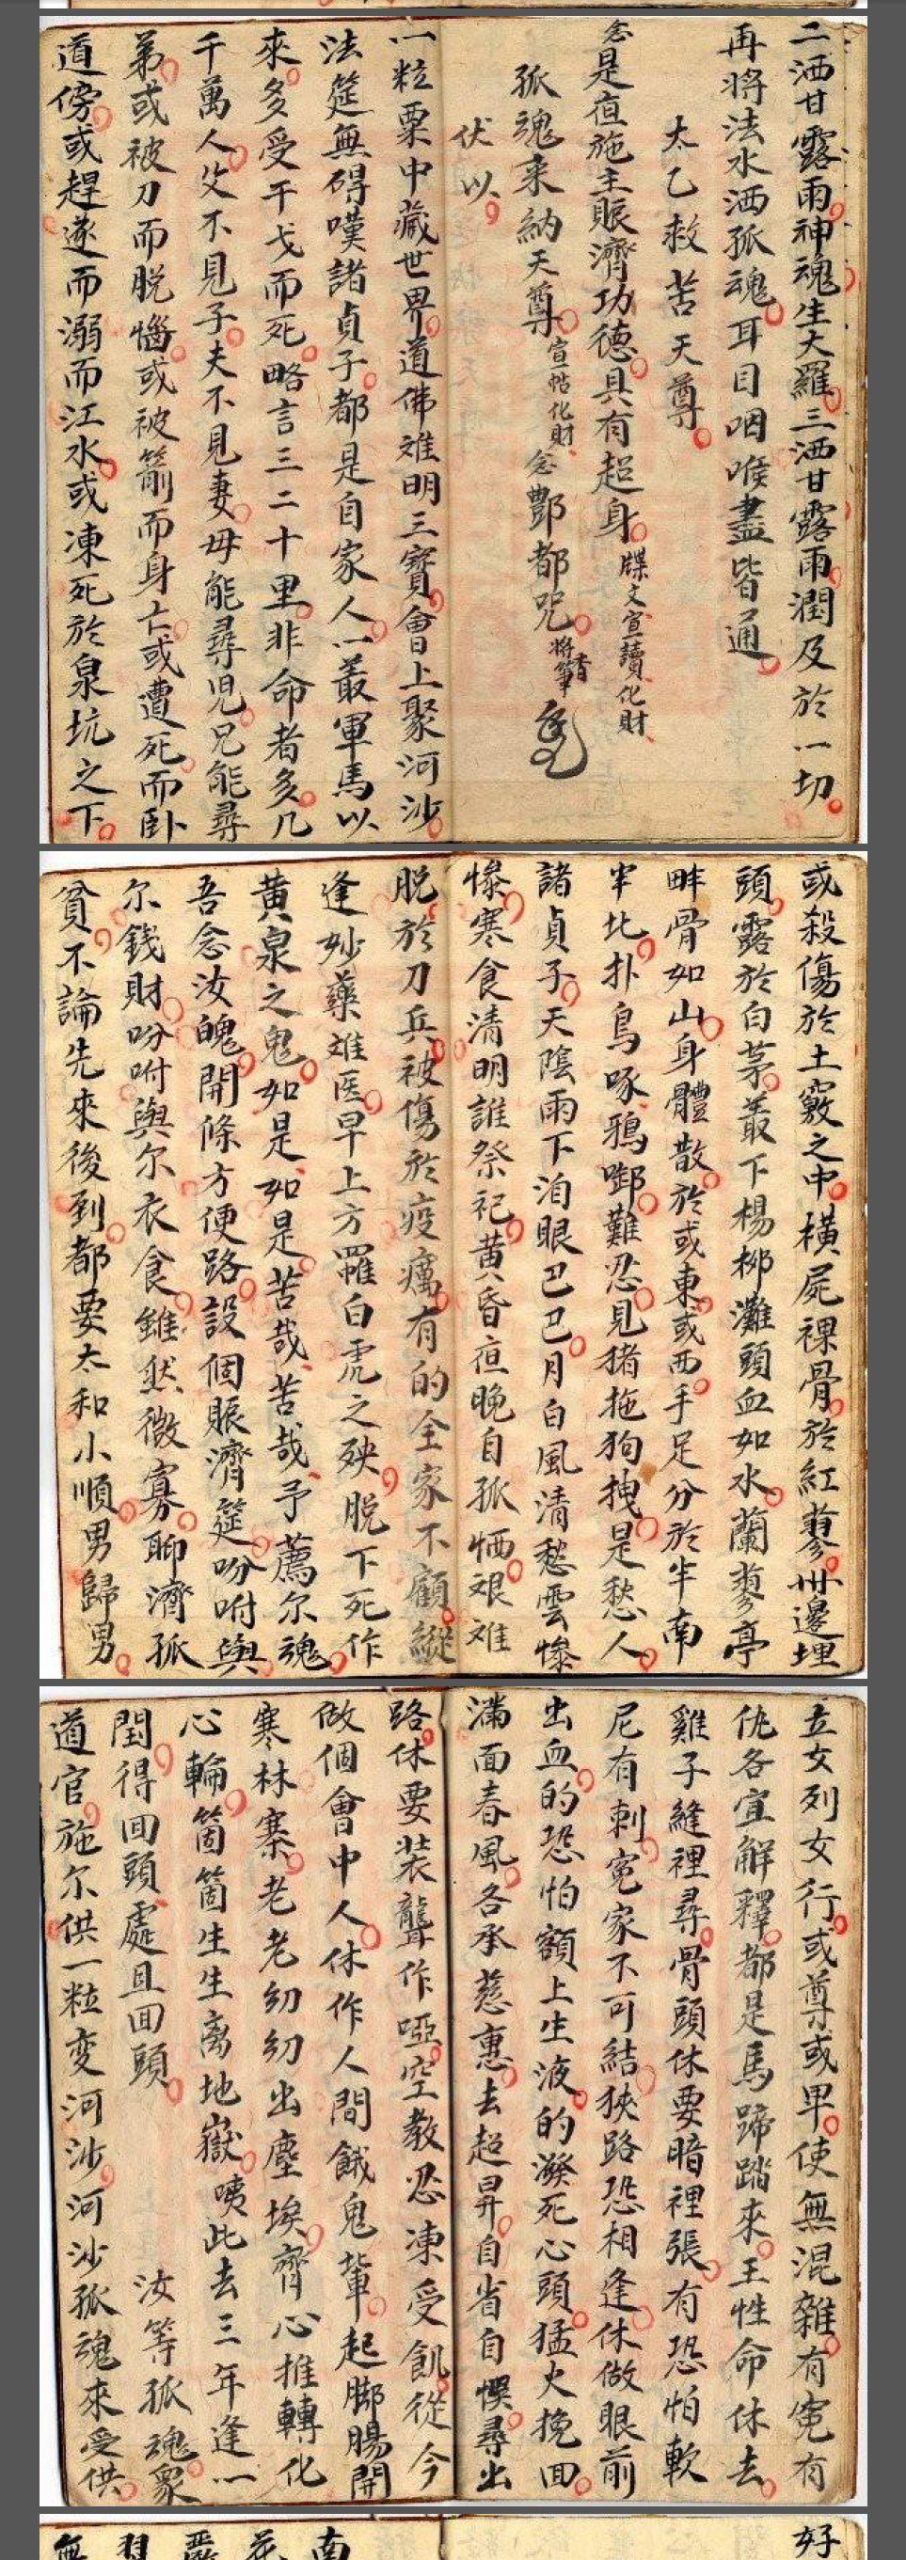 二洒甘露雨神魂生大羅三洒甘露雨潤及於一切
再將法水洒孤魂耳目咽喉盡皆通
太乙救苦天尊
念是夜施主賑濟功德具有超身牒文宣讀化財
孤魂来納天尊宣帖化財念酆都咒
伏以
一粒粟中藏世界道佛难明三寳會上聚河沙
法筵無碍嘆諸貞子都是自家人一叢軍馬以
來多受干戈而死略言三二十里非命者多几
千萬人父不見子夫不見妻母能尋児兄能尋
弟或被刀而脱惱或被箭而身亡或遭死而卧
道傍或趕逐而溺而江水或凍死於泉坑之下
或殺傷於土竅之中横屍裸骨於紅蓼卅邊埋
頭露於白茅叢下楊柳灘頭血如水蘭蓼亭
畔骨如山身體散於或東或西手足分於半南
半北扑鳥啄鴉啣難忍見猪拖狗拽是愁人
諸貞子天陰雨下泊眼巴巴月白風清愁雲惨
惨寒食清明誰祭祀黄昏夜晚自孤恓艰难
脱於刀兵被傷於疫癘有的全家不顧縱
逢妙藥难医早上方羅白虎之殃脱下死作
黄泉之鬼如是如是苦哉苦哉予薦尔魂
吾念汝魄開條方便路設個賑濟筵吩咐與
尔錢財吩咐與尔衣食雖然微寡聊濟孤
貧不論先來後到都要太和小順男歸男
立女列女行或尊或卑使無混雜有寃有
仇各宜解釋都是馬蹄踏來王性命休去
雞子縫裡尋骨頭休要暗裡張有恐怕軟
尼有刺寃家不可結狹路恐相逢休做眼前
出血的恐怕額上生液的潑死心頭猛火挽回
滿面春風各承慈惠去超昇自省自悞尋出
路休要装聾作啞空教忍凍受飢從今
做個會中人休作人間餓鬼輩起脚腸開
寒林寨老老幼幼出塵埃齊心推轉化
心輪箇箇生生离地嶽咦此去三年逢一
閏得回頭處且回頭 汝等孤魂衆
道官施尔供一粒变河沙河沙孤魂來受供
好
南